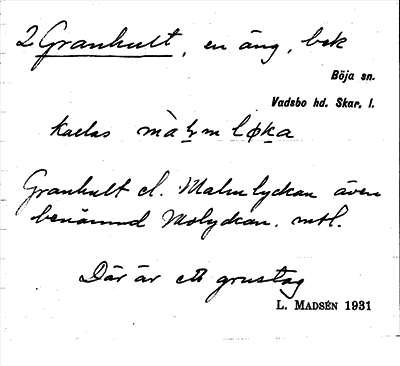 2 Granhult, en äng, bek
Böja sn.
Vadsbo hd. Skar. l.
kallas màḷm løk̲a
Granhult el. Malmlyckan även
benämnd Molyckan. mtl.
Där är ett grustag
L. MADSÉN 1931